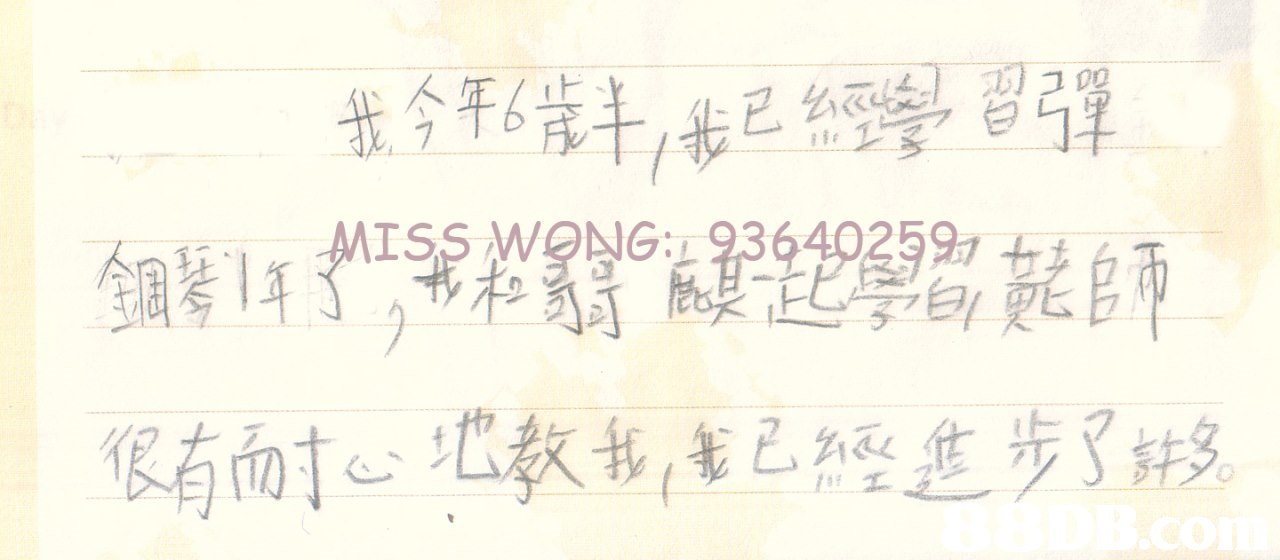 我今年6歲半,我已經學習彈
MISS WONG: 93640259
鋼琴1年了,我和哥哥 一起學習,黃老師
很有耐心地教我,我已經進步了許多。
88DB.com